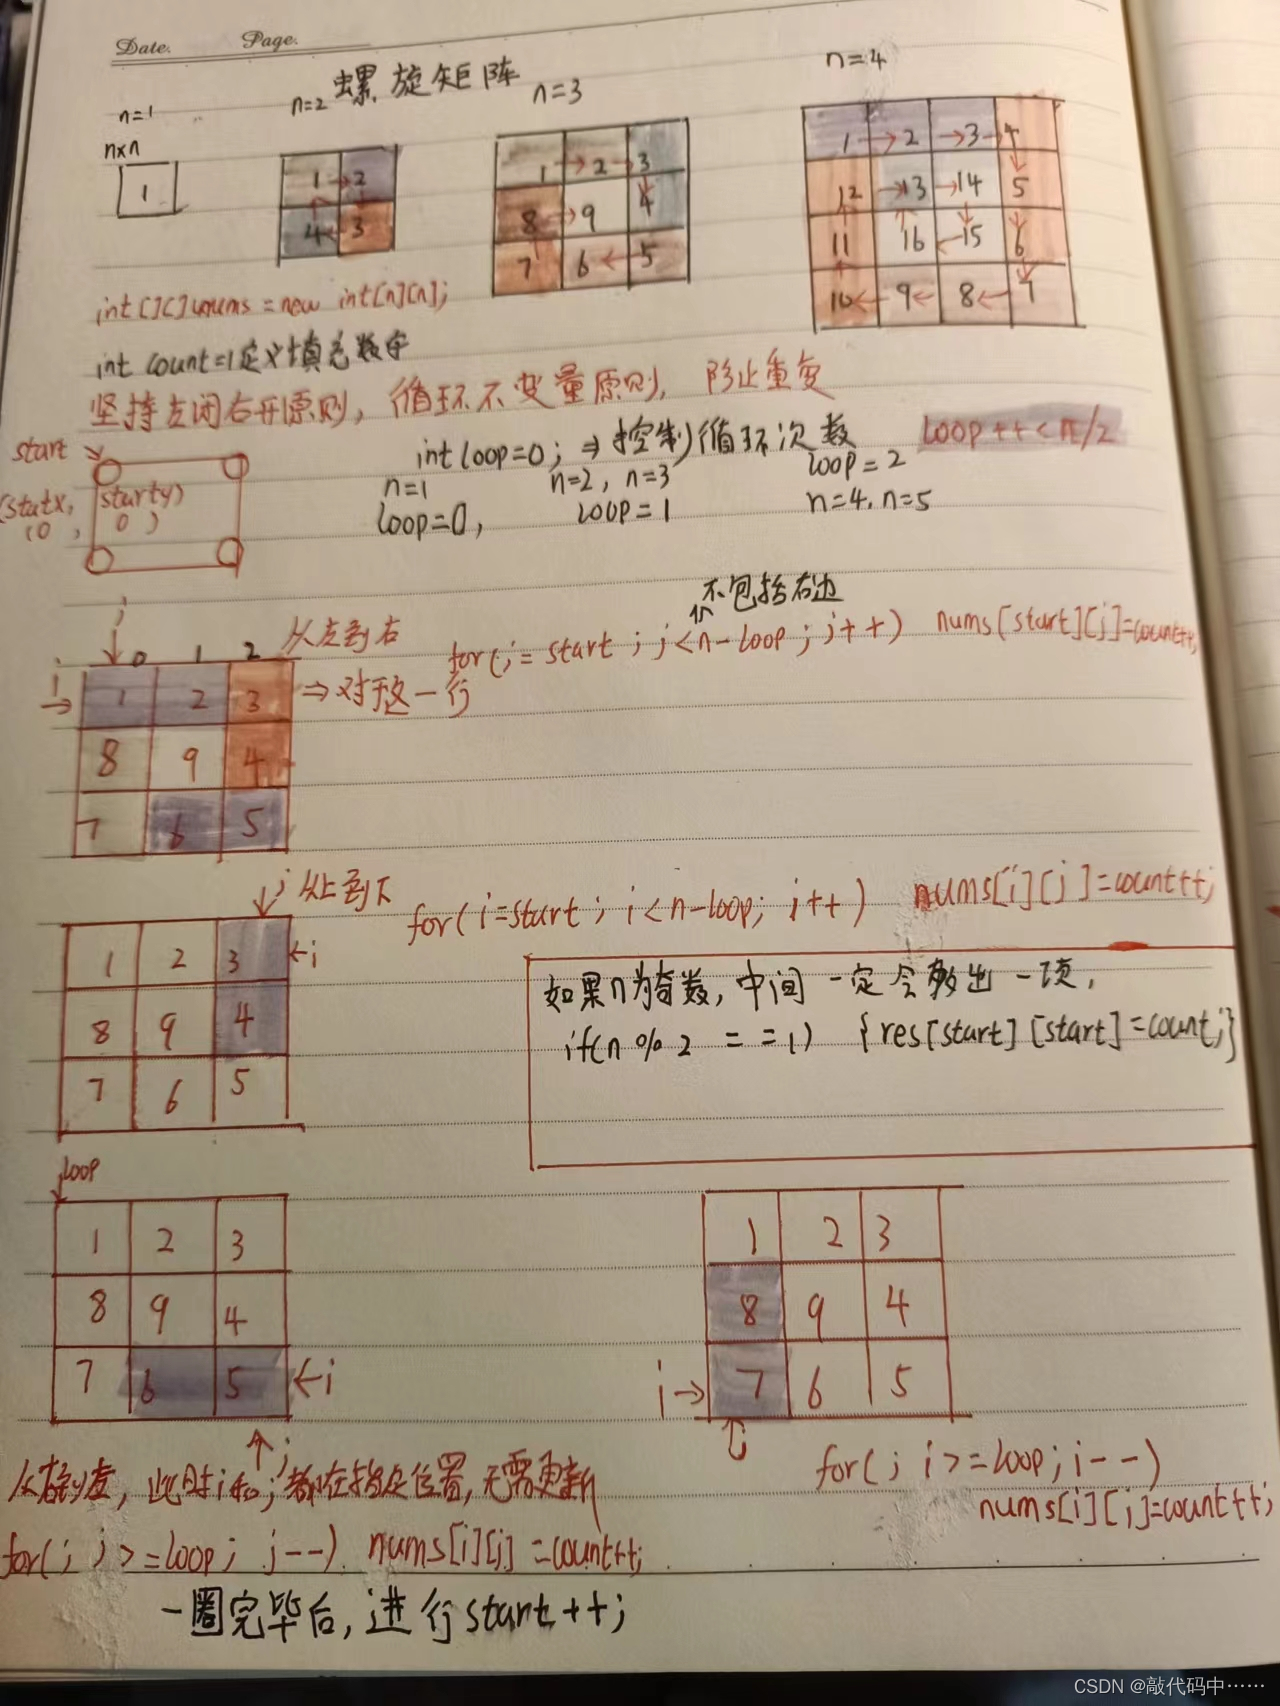 Date. Page.
螺旋矩阵
n=1 n=2 n=3 n=4
n×n
1
1→2
4 3
1→2→3
8→9 4
7 6←5
1→2→3→4
12→13→14 5
11 16←15 6
10←9←8←7
int[][]nums=new int[n][n];
int count=1定义填充数字
坚持左闭右开原则，循环不变量原则，防止重复
start
(statx, starty)
(0, 0)
int loop=0; ⇒控制循环次数 loop++<n/2
n=1 n=2, n=3 loop=2
loop=0, loop=1 n=4, n=5
j
不包括右边
0 1 2 从左到右
for(j=start; j<n-loop; j++) nums[start][j]=count++;
i
⇒对于这一行
1 2 3
8 9 4
7 6 5
j 从上到下
for(i=start; i<n-loop; i++) nums[i][j]=count++;
1 2 3 ←i
8 9 4
7 6 5
如果n为奇数，中间一定会多出一项，
if(n%2==1) {res[start][start]=count;}
loop
1 2 3
8 9 4
7 6 5 ←i
j
1 2 3
8 9 4
i→ 7 6 5
j
从右到左，此时i和j都在指定位置，无需更新
for(; j>=loop; j--) nums[i][j]=count++;
for(; i>=loop; i--)
nums[i][j]=count++;
一圈完毕后，进行start++;
CSDN @敲代码中……